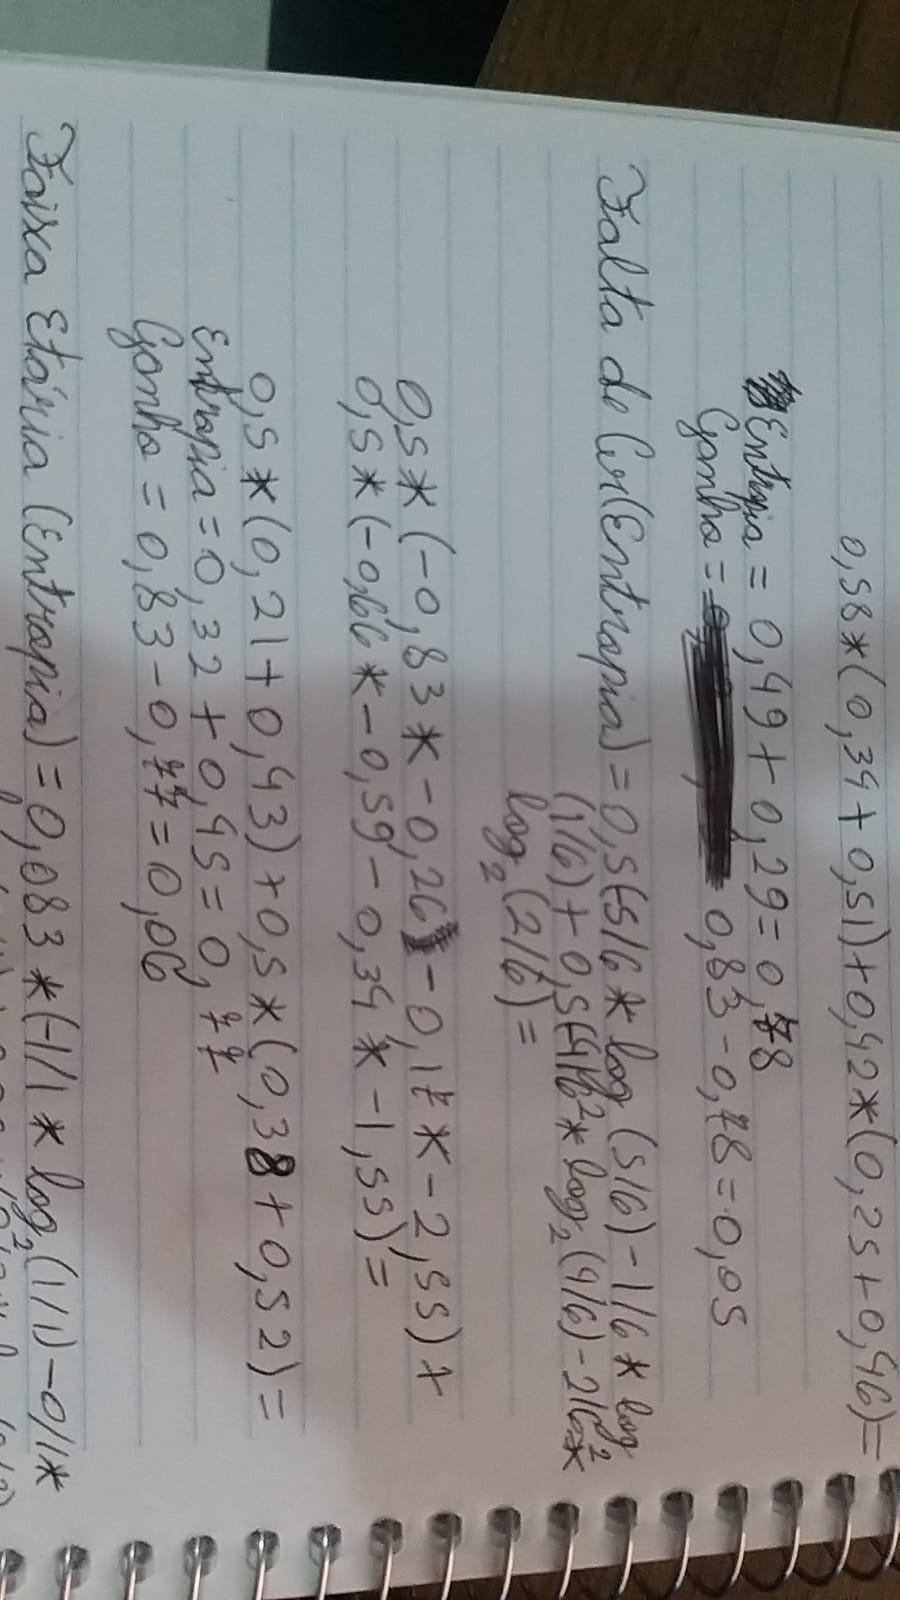 0,58*(0,34+0,51)+0,42*(0,25+0,46)=
Entropia = 0,49+0,29=0,78
Ganho = 0,83-0,78=0,05
Falta de Cor(Entropia)=0,5(-5/6*log₂(5/6)-1/6*log₂
(1/6)+0,5(-4/6*log₂(4/6)-2/6*
log₂(2/6)=
0,5*(-0,83*-0,26-0,17*-2,55)+
0,5*(-0,66*-0,59-0,34*-1,55)=
0,5*(0,21+0,43)+0,5*(0,38+0,52)=
Entropia=0,32+0,45=0,77
Ganho=0,83-0,77=0,06
Faixa Etária (Entropia)=0,083*(-1/1*log₂(1/1)-0/1*